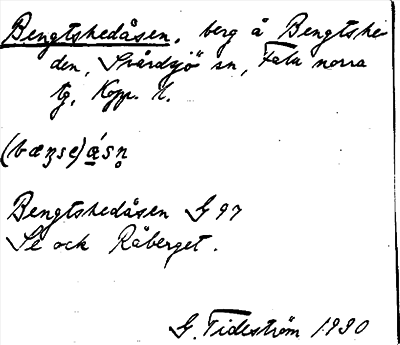 Bengtshedåsen, berg å Bengtshe-
den, Svärdsjö sn, Falu norra
tg, Kopp. l.
(bæŋse)ásn̥
Bengtshedåsen G 97
Se ock Råberget.
G. Tideström 1930